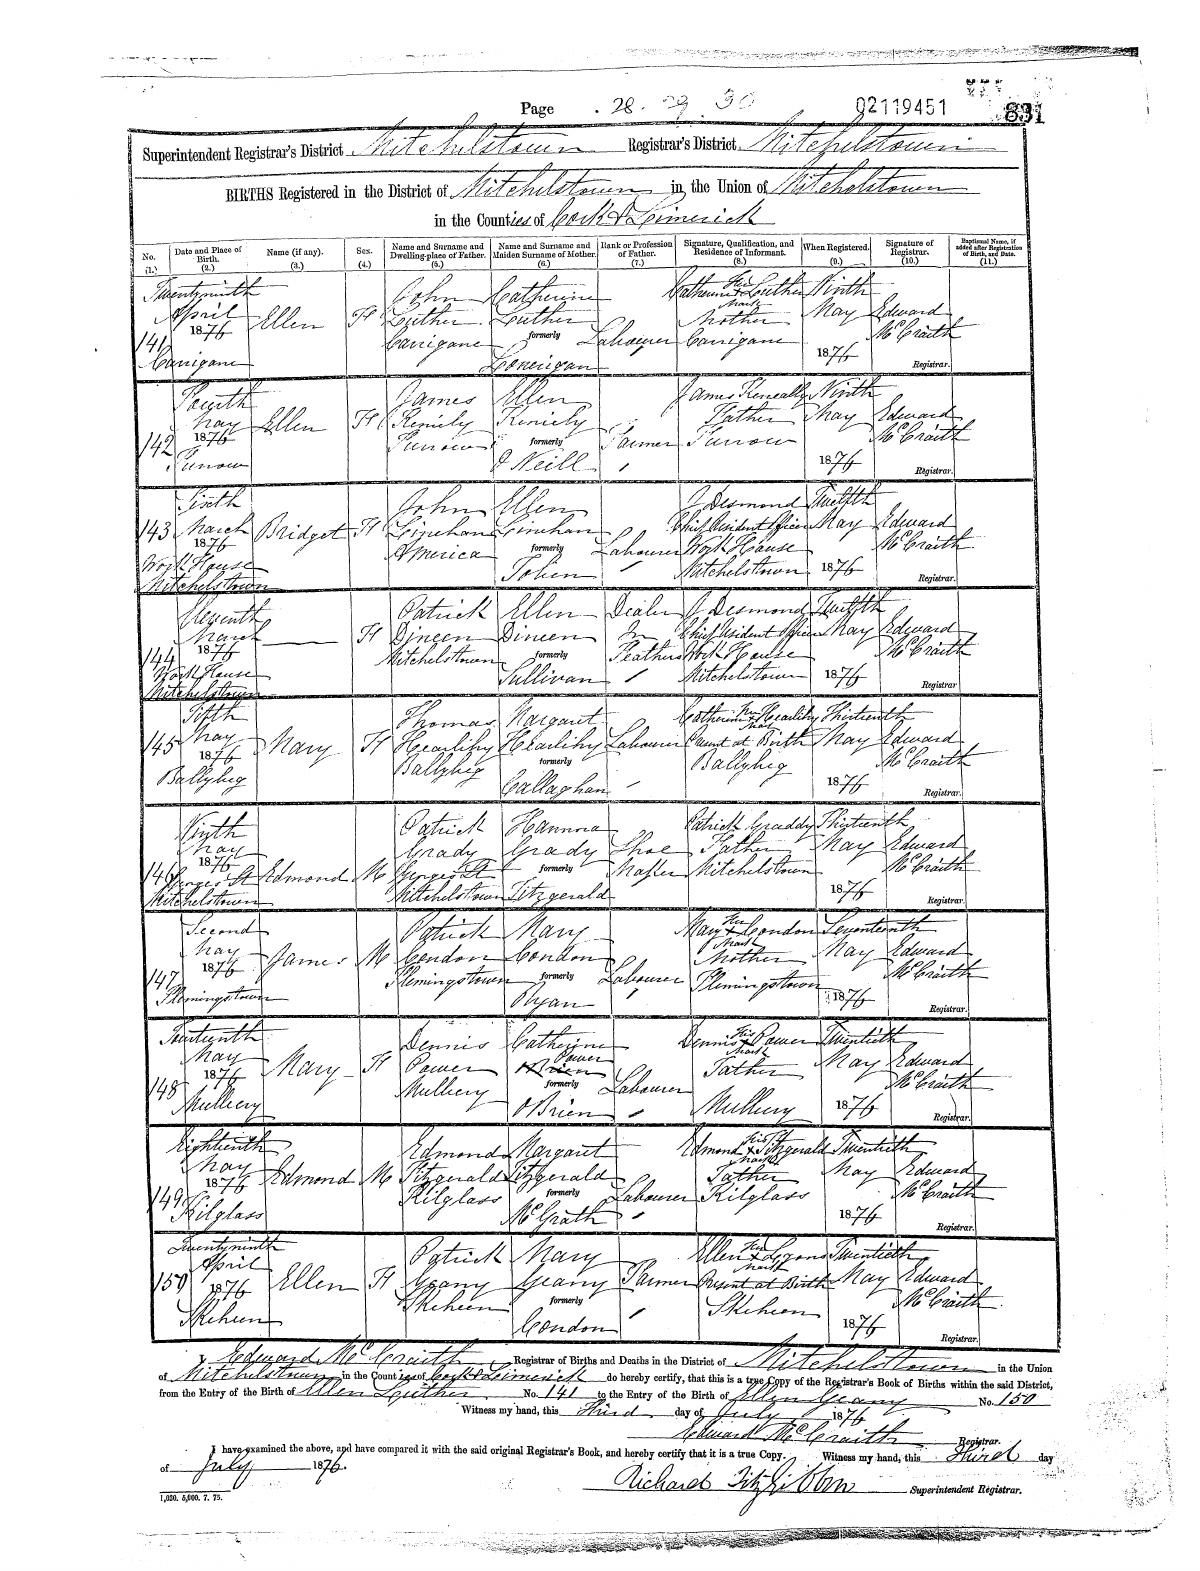 Page 28. 29. 30 02119451 831
Superintendent Registrar's District Mitchelstown Registrar's District Mitchelstown
BIRTHS Registered in the District of Mitchelstown in the Union of Mitchelstown
in the Counties of Cork & Limerick
No. (1.) Date and Place of Birth. (2.) Name (if any). (3.) Sex. (4.) Name and Surname and Dwelling-place of Father. (5.) Name and Surname and Maiden Surname of Mother. (6.) Rank or Profession of Father. (7.) Signature, Qualification, and Residence of Informant. (8.) When Registered. (9.) Signature of Registrar. (10.) Baptismal Name, if added after Registration of Birth, and Date. (11.)
141 Twentyninth April 1876 Carrigane Ellen F John Luther Carrigane Catherine Luther formerly Lonerigan Labourer Catherine Luther her x mark Mother Carrigane Ninth May 1876 Edward McCraith Registrar.
142 Fourth May 1876 Furrow Ellen F James Keniely Furrow Ellen Keniely formerly O'Neill Farmer James Keneally Father Furrow Ninth May 1876 Edward McCraith Registrar.
143 Sixth March 1876 Work House Mitchelstown Bridget F John Linehan America Ellen Linehan formerly Tobin Labourer J Desmond Chief Resident Officer Work House Mitchelstown Twelfth May 1876 Edward McCraith Registrar.
144 Eleventh March 1876 Work House Mitchelstown — F Patrick Dineen Mitchelstown Ellen Dineen formerly Sullivan Dealer In Feathers J Desmond Chief Resident Officer Work House Mitchelstown Twelfth May 1876 Edward McCraith Registrar
145 Fifth May 1876 Ballybeg Mary F Thomas Hearlihy Ballybeg Margaret Hearlihy formerly Callaghan Labourer Catherine Hearlihy her x mark Present at Birth Ballybeg Thirteenth May 1876 Edward McCraith Registrar.
146 Ninth May 1876 Georges St Mitchelstown Edmond M Patrick Grady Georges St Mitchelstown Hannora Grady formerly Fitzgerald Shoe Maker Patrick Graddy Father Mitchelstown Thirteenth May 1876 Edward McCraith Registrar.
147 Second May 1876 Flemingstown James M Patrick Condon Flemingstown Mary Condon formerly Ryan Labourer Mary Condon her x mark Mother Flemingstown Seventeenth May 1876 Edward McCraith Registrar.
148 Fourteenth May 1876 Mullery Mary F Dennis Power Mullery Catherine Power formerly O'Brien Labourer Dennis Power his x mark Father Mullery Twentieth May 1876 Edward McCraith Registrar.
149 Eighteenth May 1876 Kilglass Edmond M Edmond Fitzgerald Kilglass Margaret Fitzgerald formerly McGrath Labourer Edmond Fitzgerald his x mark Father Kilglass Twentieth May 1876 Edward McCraith Registrar.
150 Twentyninth April 1876 Skeheen Ellen F Patrick Geany Skeheen Mary Geany formerly Condon Farmer Ellen Lyons her x mark Present at Birth Skeheen Twentieth May 1876 Edward McCraith Registrar.
I Edward McCraith Registrar of Births and Deaths in the District of Mitchelstown in the Union
of Mitchelstown in the Counties of Cork & Limerick do hereby certify, that this is a true Copy of the Registrar's Book of Births within the said District,
from the Entry of the Birth of Ellen Luther No. 141 to the Entry of the Birth of Ellen Geany No. 150
Witness my hand, this Third day of July 1876
Edward McCraith Registrar.
I have examined the above, and have compared it with the said original Registrar's Book, and hereby certify that it is a true Copy. Witness my hand, this Third day
of July 1876.
Richard FitzGibbon Superintendent Registrar.
1,030. 5,000. 7. 75.